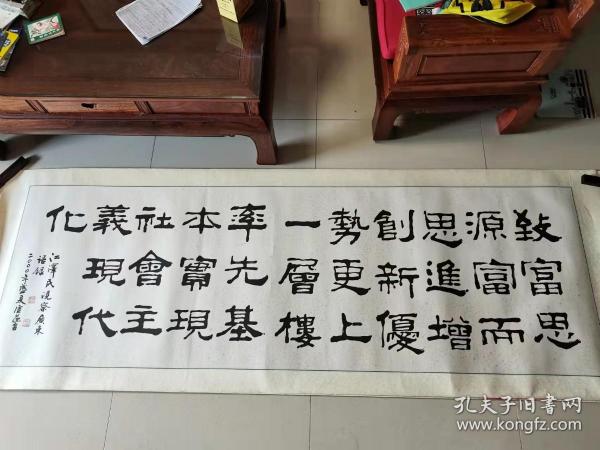 致富思
源富而
思進增
創新優
勢更上
一層樓
率先基
本實現
社會主
義現代
化
江澤民視察廣東
語錄
二000年盛夏
孔夫子旧书网
www.kongfz.com